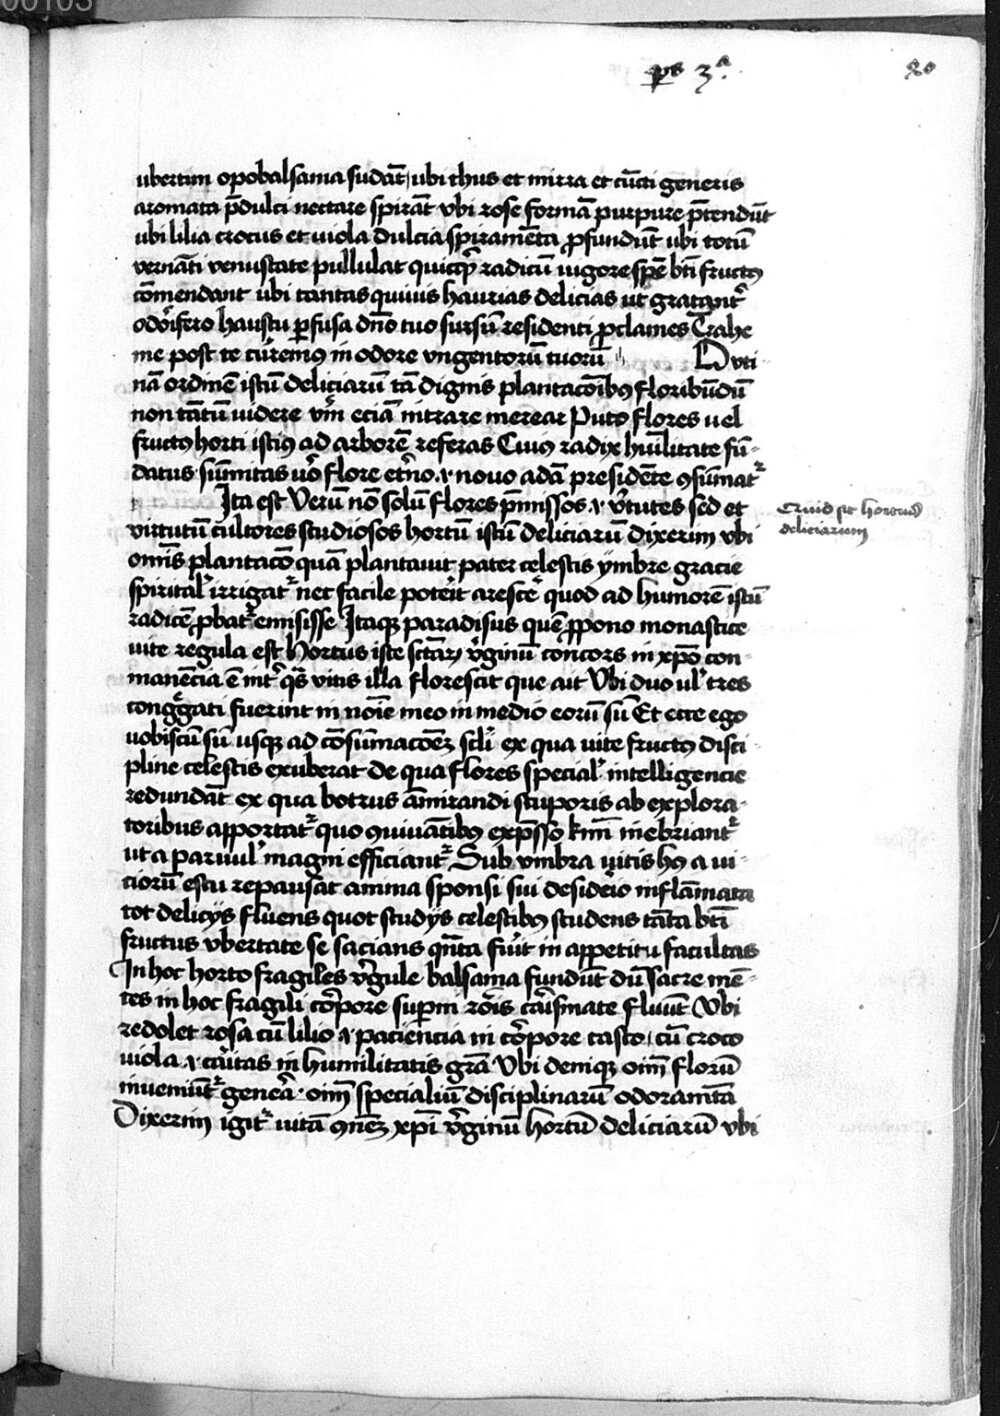 00103
ps 3ᵃ.
20
ubertim opobalsama sudāt, ubi thus et mirra et cūcti generis
aromata p̄dulci nectare spirāt Vbi rose formā purpure p̄tendūt
ubi lilia crocus et viola dulcia spiramēta ꝓfundūt ubi totū
vernāti venustate pullulat quicq̄ radicū vigore spē bn̄ fructꝰ
cōmendant ubi tantas quivis haurias delicias ut gratant᷑
odōifero haustu ꝑfusa dn̄o tuo sursū residenti ꝓclames Trahe
me post te cūremꝰ in odore vngentorū tuorū O vti
nā ordinē istū deliciarū tā dignis plantacōibꝰ floribūdū
non tātū videre vn̄ eciā intrare merear Puto flores uel
fructꝰ horti istiꝰ ad arborē referas Cuius radix hūilitate fū-
datus sūmitas uō flore et̄no ⁊ novo adā presidēte ꝯsūmat᷑
Ita est Verū nō solū flores p̄missos ⁊ v̄tutes sed et
virtutū cultores studiosos hortū istū deliciarū dixerim vbi
omīs plantacō quā plantavit pater celestis ymbre gracie
spirital᷑ irrigat᷑ nec facile potērit arescē quod ad humorē istū
radicē ꝓbat᷑ emisisse Itaqꝫ paradisus quē ꝓpono monastice
vite regula est Hortus iste sctāꝝ v̄ginū concors in xp̄o con-
manēcia ē int̄ q̄s vitis illa florescit que ait Vbi duo ul᷑ tres
congḡati fuerint in noīe meo in medio eorū sū Et ecce ego
vobiscū sū usqꝫ ad cōsūmacōeꝫ scl̄i ex qua vite fructꝰ disci-
pline celestis exuberat de qua flores special᷑ intelligencie
redundāt ex qua botrus āmirandi stuporis ab explora-
toribus apportat᷑ quo ꝯvivātibꝰ exp̄sso inebriant᷑
ut a parvul᷑ magni efficiant᷑ Sub vmbra vitis hꝰ a vi-
ciorū estu repausāt anima sponsi sui desideīo inflāmata
tot deliciis fluens quot studiis celestibꝰ studens tāta bn̄
fructus vbertate se sacians qn̄ta fiūt in appetitu facultas
In hoc horto fragiles v̄gule balsama fundūt dū sacre mē-
tes in hoc fragili cōpore supn̄i rōis cārismate fluūt Vbi
redolet rosa cū lilio ⁊ paciencia in cōpore casto, cū croco
viola ⁊ cāitas in humilitatis grā Vbi deniqꝫ oīm florū
inveniūt᷑ genēa. oīm specialiū disciplinarū odoramēta
Dixerim igit᷑ vitā ꝯn̄eꝫ xp̄i v̄ginū hortū deliciarū vbi
Quid sit hortus
deliciarum